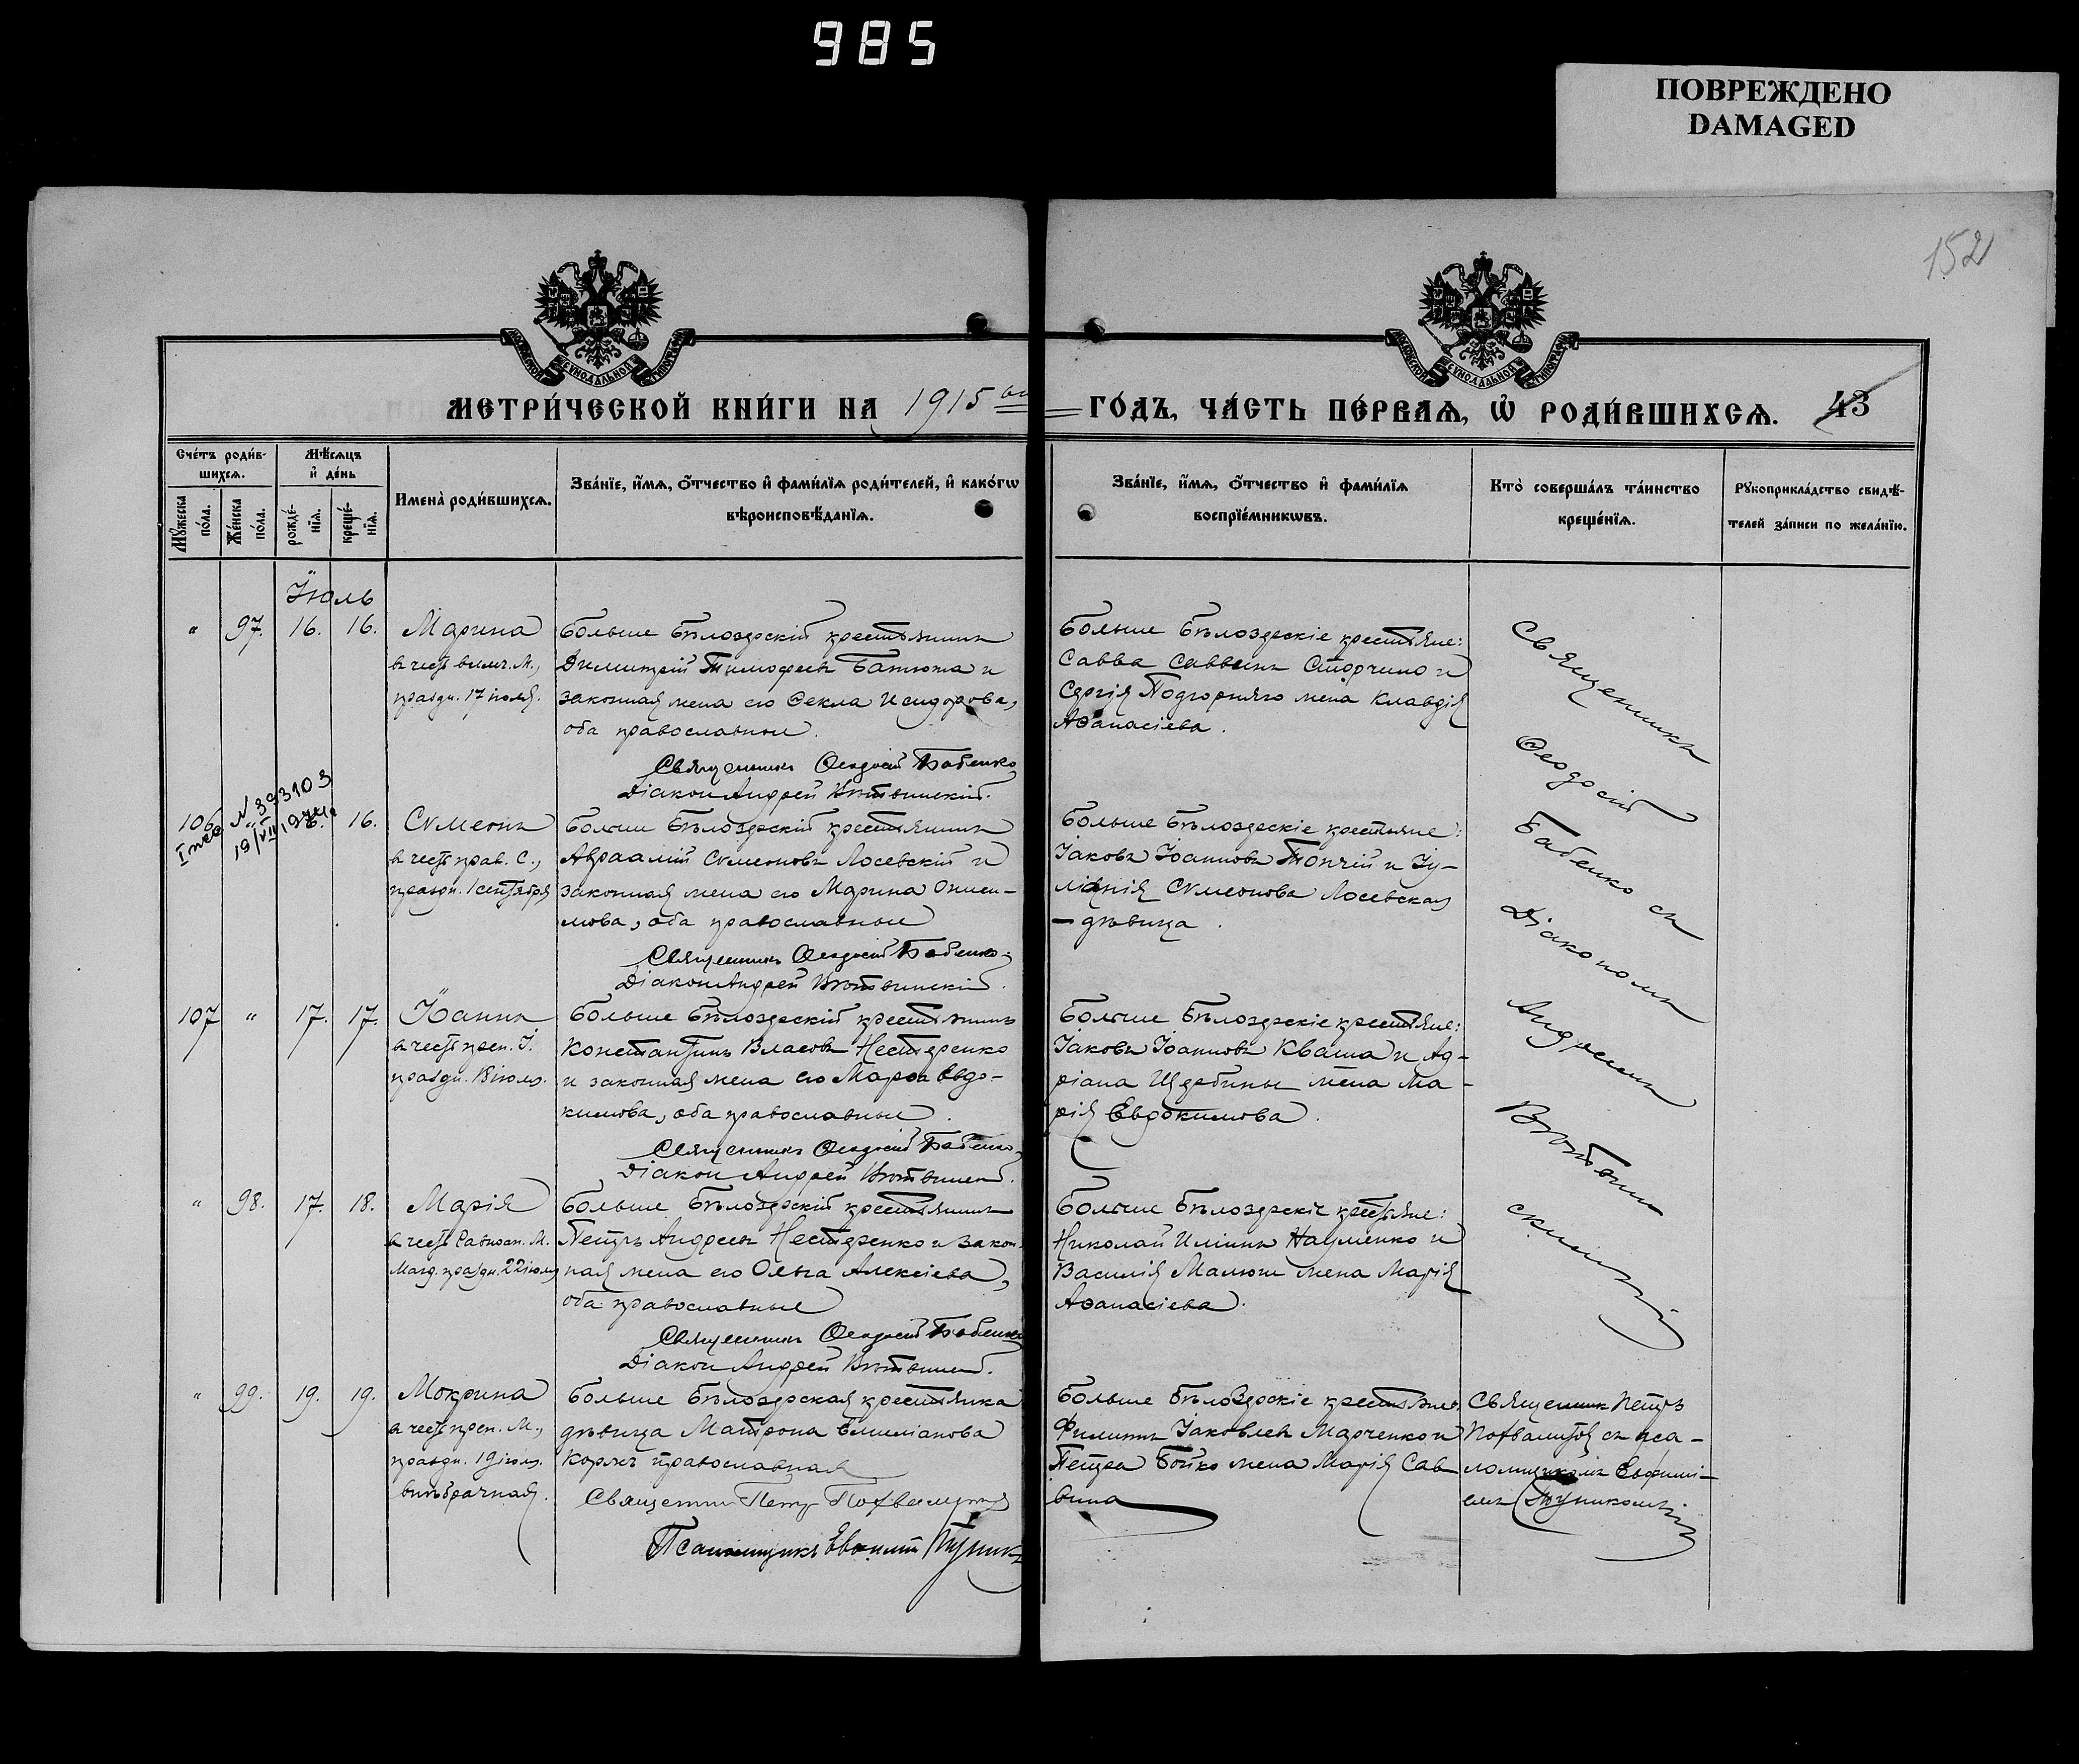 985
ПОВРЕЖДЕНО
DAMAGED
152
МЕТРИ́ЧЕСКОЙ КНИ́ГИ НА 1915 ый
ГО́ДЪ, ЧА́СТЬ ПЕ́РВАѦ, Ѡ҆ РОДИ́ВШИХСѦ. 43
Сче́тъ роди́в-
шихсѧ.
Мꙋ́жеска по́ла.
Же́нска по́ла.
Мѣ́сѧцъ
и҆ де́нь
рожде́-
нїѧ.
креще́-
нїѧ.
Имена̀ роди́вшихсѧ.
Зва́нїе, и҆́мѧ, ѻ҆́тчество и҆ фами́лїѧ роди́телей, и҆ како́гѡ
вѣроисповѣ́данїѧ.
Зва́нїе, и҆́мѧ, ѻ҆́тчество и҆ фами́лїѧ
воспрїе́мникѡвъ.
Кто̀ соверша́лъ та́инство
креще́нїѧ.
Рꙋкоприкла́дство свидѣ́-
телей за́писи по жела́нїю.
Іюль
" 97. 16. 16. Марина
в честь велмч. М.,
праздн. 17 іюля.
Больше Бѣлозерскій крестьянинъ
Димитрій Тимофеевъ Батюта и
законная жена его Ѳекла Исидорова,
оба православные.
Священникъ Ѳеодосій Бабенко
Діаконъ Андрей
Больше Бѣлозерскіе крестьяне:
Савва Саввинъ Сторчило и
Сергія Подгорняго жена Клавдія
Аѳанасіева.
Священникъ
Ѳеодосій
Бабенко съ
Діакономъ
Андреемъ
N 393103
19/VII 1974
106 16. Сѵмеонъ
в честь прав. С.,
праздн. 1 сентября
Больше Бѣлозерскій крестьянинъ
Авраамій Сѵмеоновъ Лосевскій и
законная жена его Марина Ониси-
мова, оба православные
Священникъ Ѳеодосій Бабенко
Діаконъ Андрей
Больше Бѣлозерскіе крестьяне:
Іаковъ Іоанновъ Топчій и Іу-
ліанія Сѵмеонова Лосевская
— дѣвица.
107 " 17. 17. Іоаннъ
в честь преп. І.
праздн. 18 іюля.
Больше Бѣлозерскій крестьянинъ
Константинъ Власовъ Нестеренко
и законная жена его Марѳа Евдо-
кимова, оба православные.
Священникъ Ѳеодосій Бабенко
Діаконъ Андрей
Больше Бѣлозерскіе крестьяне:
Іаковъ Іоанновъ Кваша и Ад-
ріана Щербины жена Ма-
рія Евдокимова.
" 98. 17. 18. Марія
в честь Равноап. М.
Магд. праздн. 22 іюля
Больше Бѣлозерскій крестьянинъ
Петръ Андреевъ Нестеренко и закон-
ная жена его Ольга Алексіева,
оба православные
Священникъ Ѳеодосій Бабенко
Діаконъ Андрей
Больше Бѣлозерскіе крестьяне:
Николай Иліинъ Науменко и
Василія Малюги жена Марія
Аѳанасіева.
" 99. 19. 19. Мокрина
в честь преп. М.,
праздн. 19 іюля.
внѣбрачная.
Больше Бѣлозерская крестьянка
дѣвица Матрона Емиліанова
Коржъ православная
Священникъ Петръ
Псаломщикъ Евфимій
Больше Бѣлозерскіе крестьяне.
Филиппъ Іаковлевъ Марченко и
Петра Бойко жена Марія Сав-
вина
Священникъ Петръ
съ пса-
ломщикомъ Евфимі-
емъ